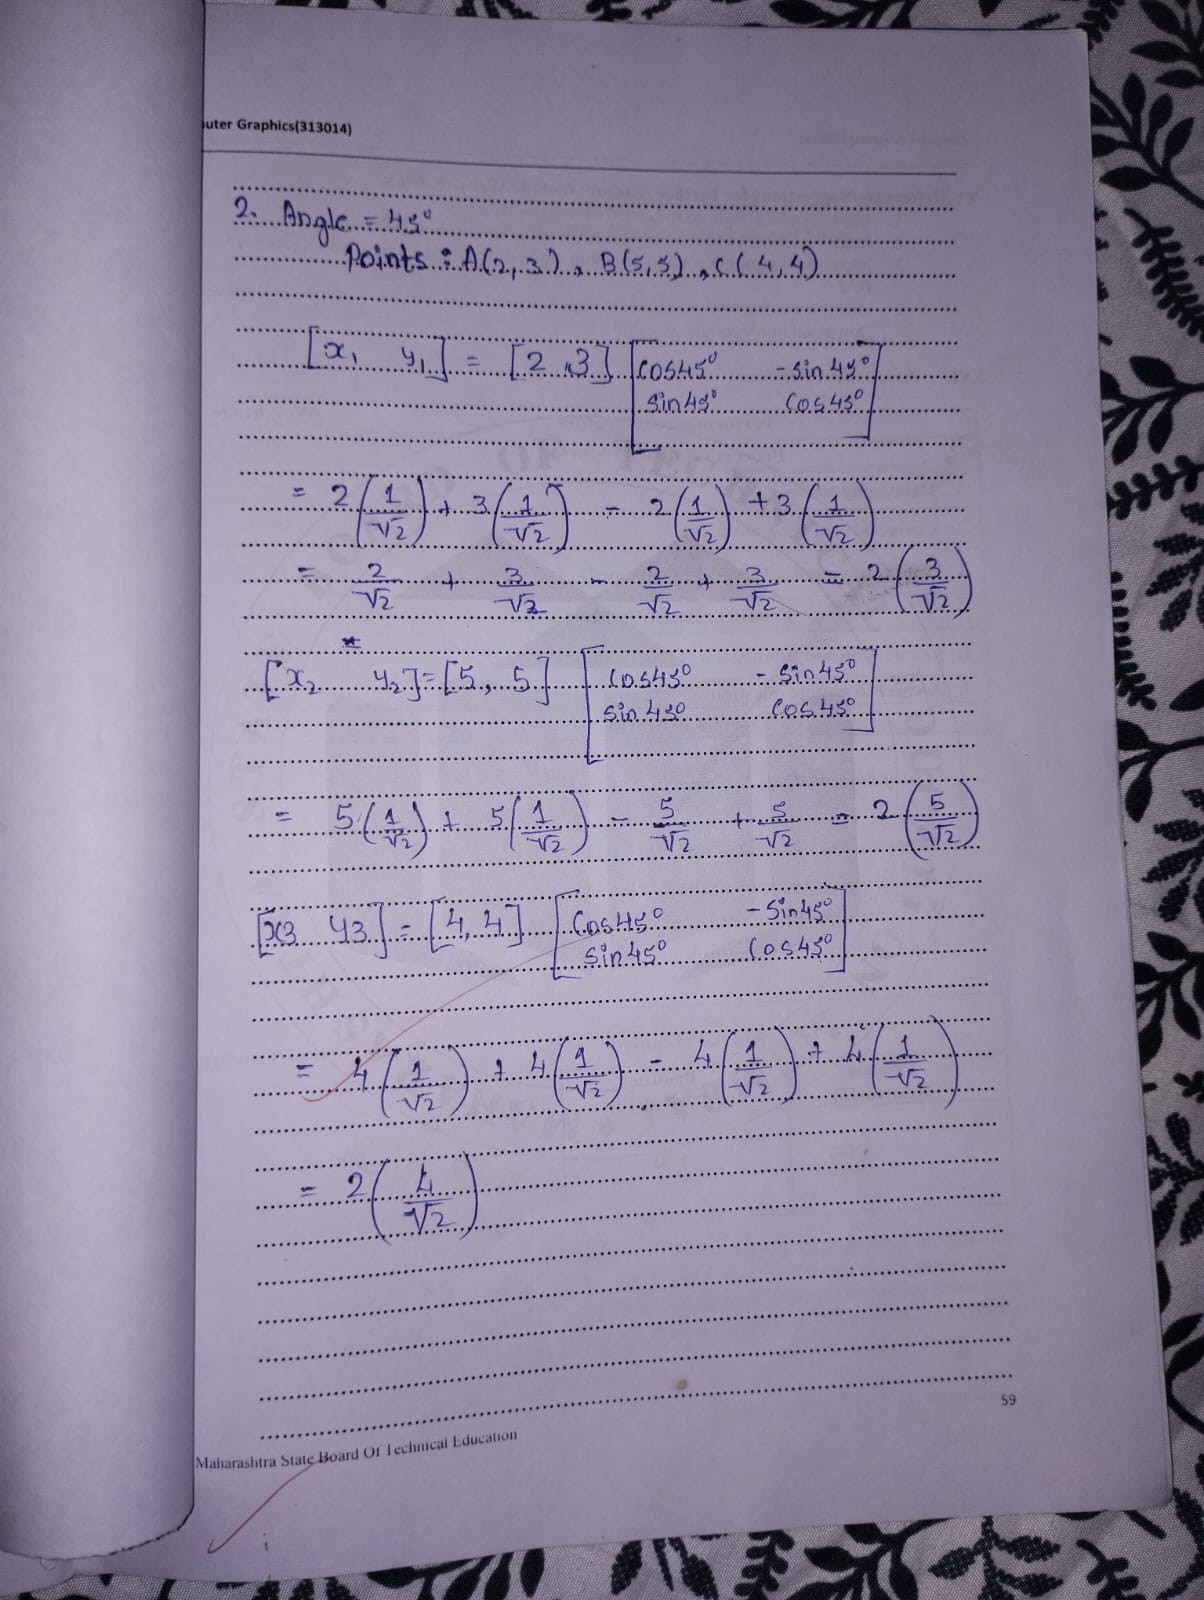 uter Graphics(313014)
2. Angle = 45°
Points : A(2, 3), B(5,5), C(4,4)
[x₁ y₁] = [2, 3] [cos45° -sin45°
sin45° cos45°]
= 2(1/√2) + 3(1/√2) - 2(1/√2) + 3(1/√2)
= 2/√2 + 3/√2 - 2/√2 + 3/√2 = 2(3/√2)
[x₂ y₂] = [5, 5] [cos45° - sin45°
sin45° cos45°]
= 5(1/√2) + 5(1/√2) - 5/√2 + 5/√2 = 2(5/√2)
[x3 y3] = [4, 4] [cos45° -sin45°
sin45° cos45°]
= 4(1/√2) + 4(1/√2) - 4(1/√2) + 4(1/√2)
= 2(4/√2)
59
Maharashtra State Board Of Technical Education